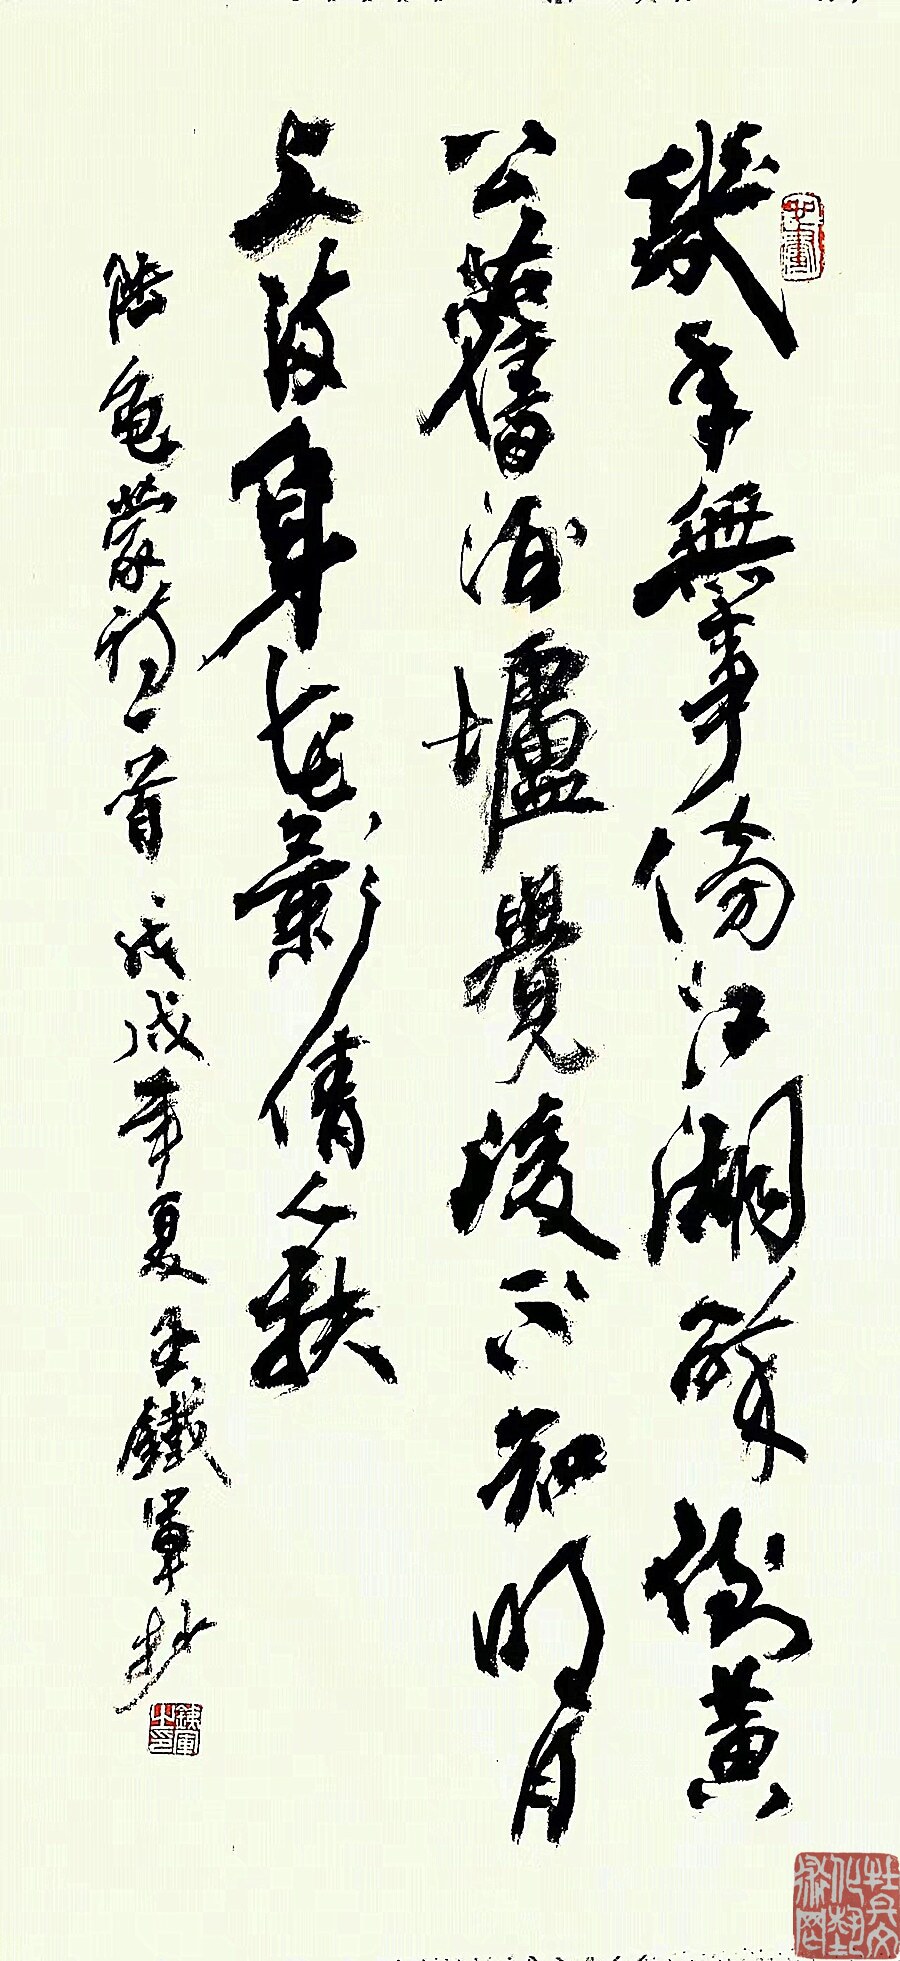 幾年無事傍江湖醉倒黃
公舊酒壚覺後不知明月
上滿身花影倩人扶
陸龜蒙詩一首 戊戌年夏 王鐵軍抄
鐵軍之印